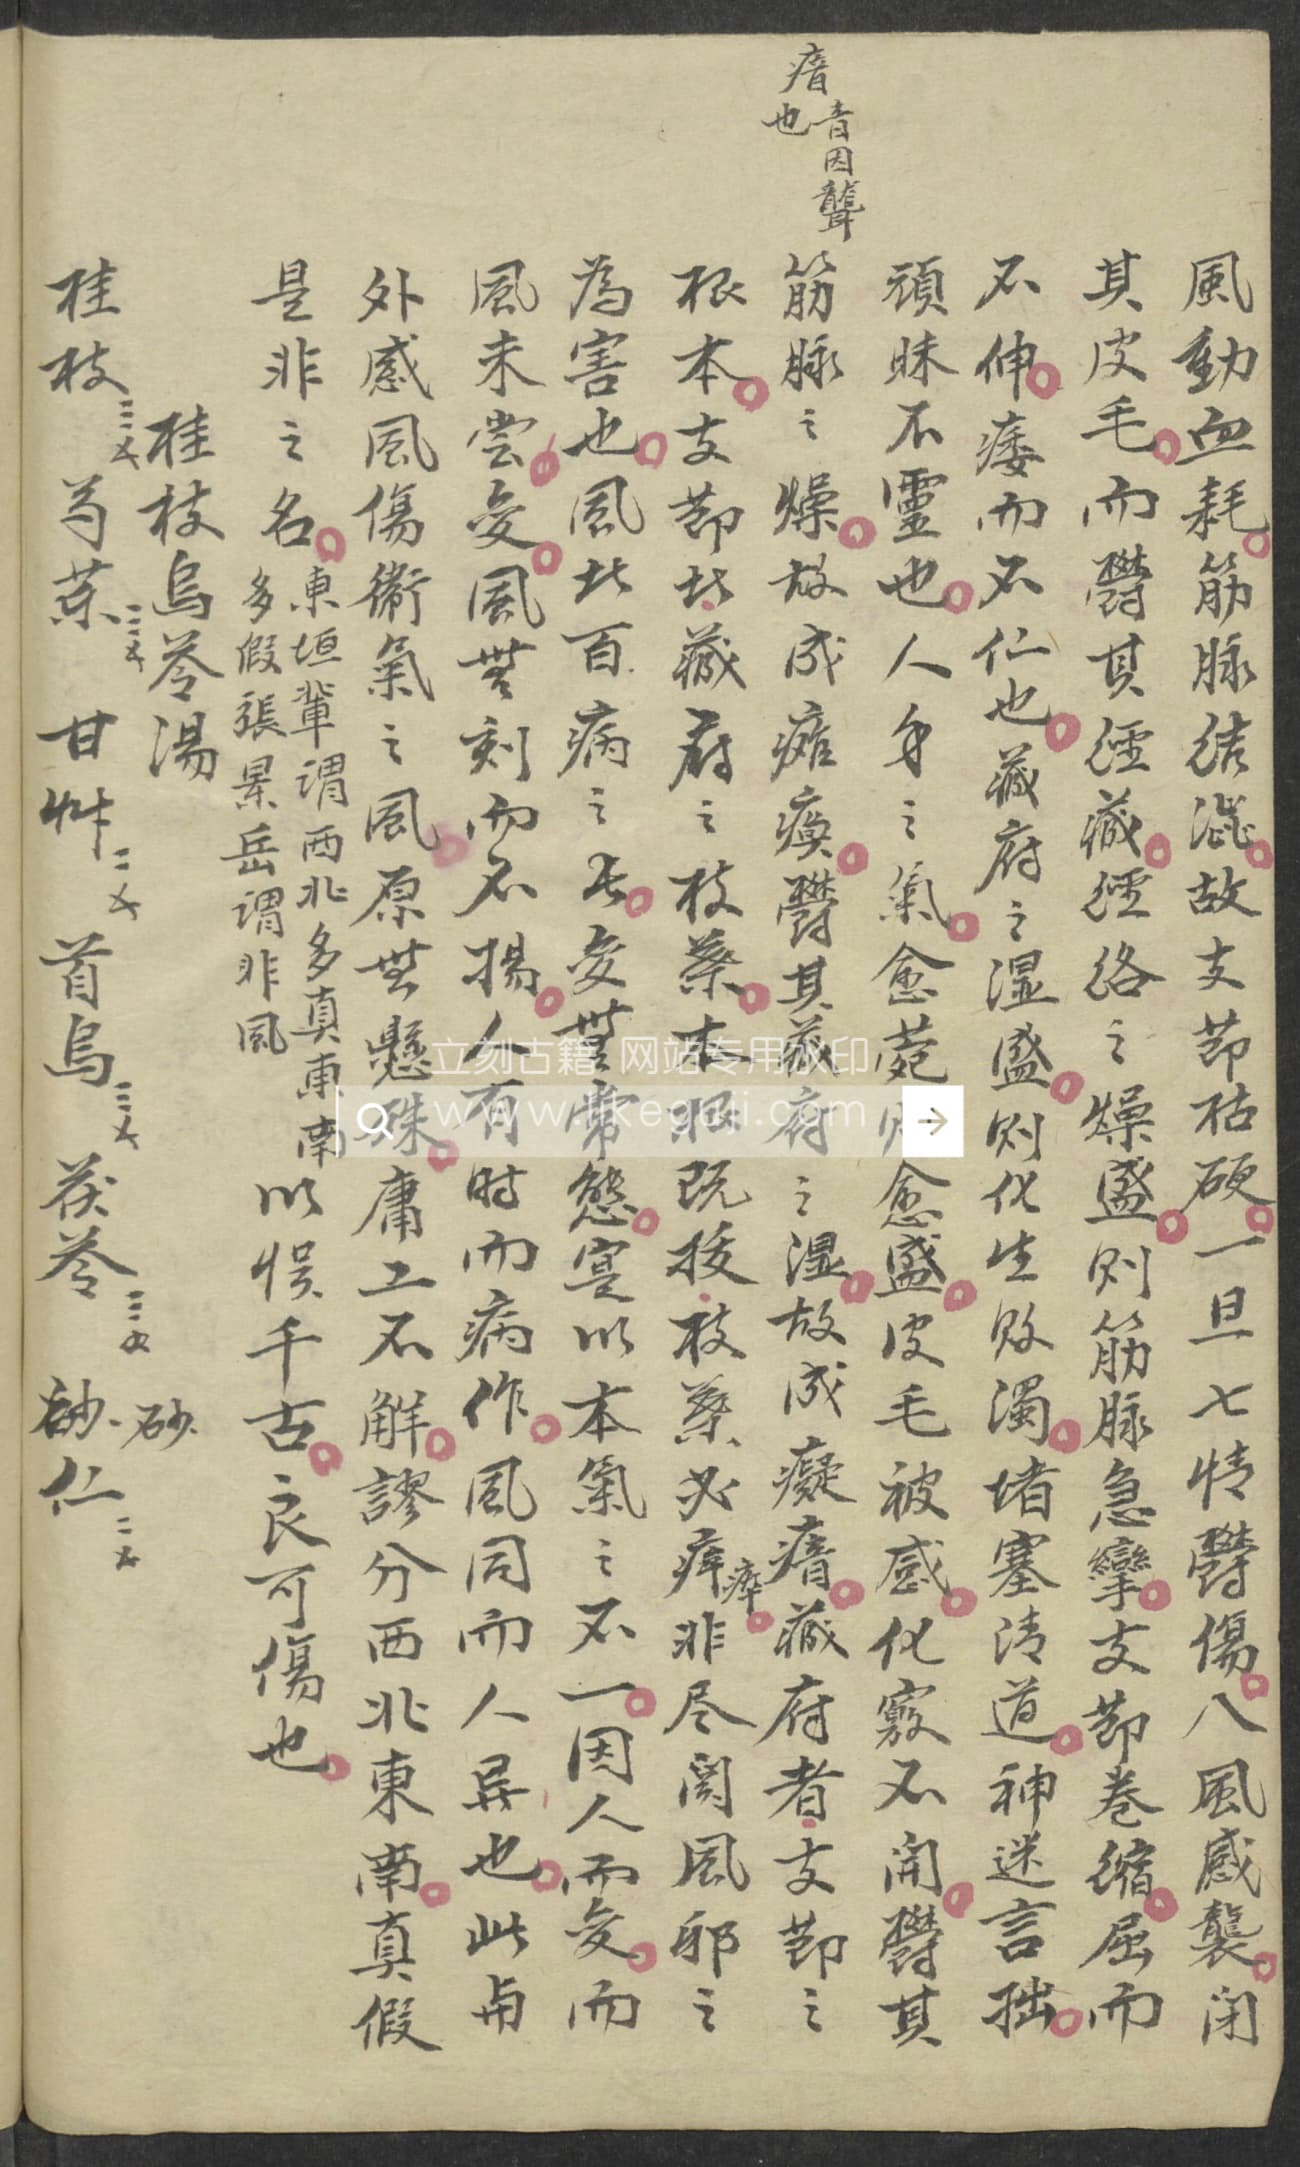 瘖音因聾
也
風動血耗筋脉結澁故支莭枯硬一旦七情鬱傷八風感襲闭
其皮毛而鬱其經藏經絡之燥盛則筋脉急攣支莭卷縮屈而
不伸痿而不仁也藏府之湿盛則化生敗濁堵塞清道神迷言拙
頑昧不靈也人身之氣愈菀愈盛皮毛被感化竅不開鬱其
筋脉之燥故成癱瘓鬱其藏府之湿故成癡瘖藏府者支莭之
根本支莭者藏府之枝葉本根既拔枝葉必瘁非尽関風邪之
瘁
為害也風者百病之長変無常態寔以本氣之不一因人而変而
風未尝変風無刻而不揚人有时而病作風同而人異也此与
外感風傷衛氣之風原無懸殊庸工不解謬分西北東南真假
是非之名東垣輩謂西北多真東南
多假張景岳謂非風
以悮千古良可傷也
桂枝烏苓湯
桂枝 芍薬 甘艸 首烏 茯苓 砂仁
砂
立刻古籍 网站专用水印
www.likeguji.com